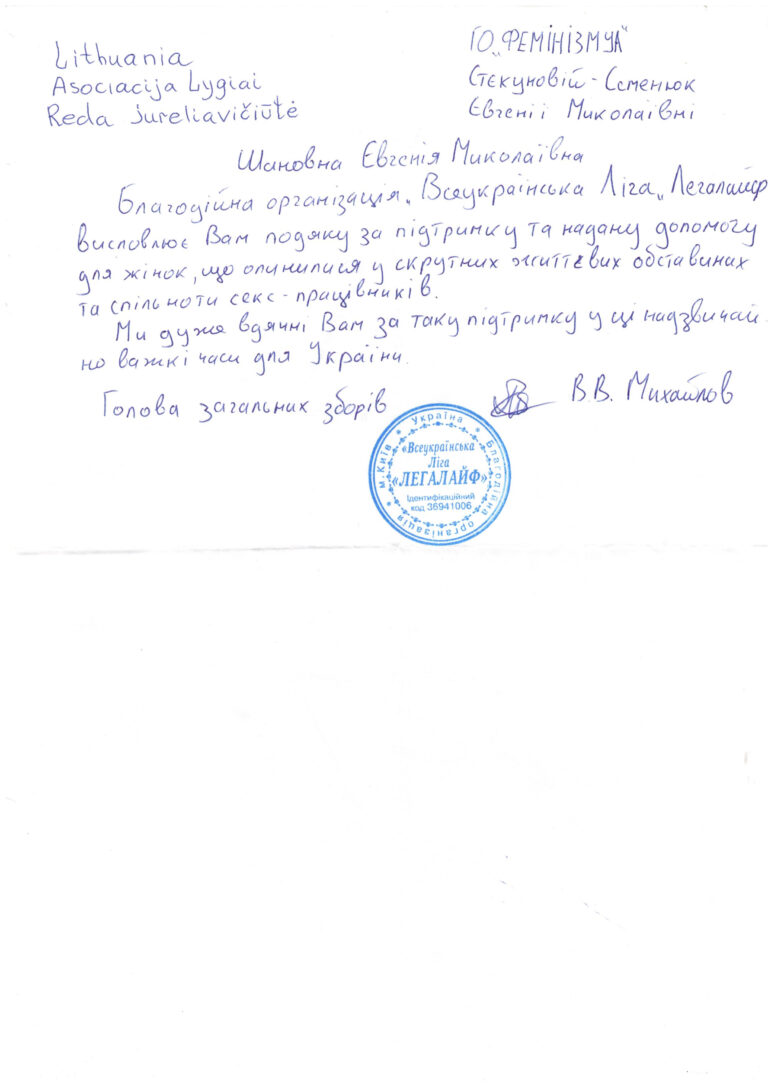 Lithuania
Asociacija Lygiai
Reda Jureliavičiūtė
ГО „ФЕМІНІЗМУА"
Стєкуновій-Семенюк
Євгенії Миколаївні
Шановна Євгенія Миколаївна
Благодійна організація „Всеукраїнська Ліга „Легалайф
висловлює Вам подяку за підтримку та надану допомогу
для жінок, що опинилися у скрутних життєвих обставинах
та спільноти секс-працівників.
Ми дуже вдячні Вам за таку підтримку у ці надзвичай
но важкі часи для України.
Голова загальних зборів
В.В. Михайлов
* Україна * Благодійна організація * м.Київ
«Всеукраїнська
Ліга
«ЛЕГАЛАЙФ»
Ідентифікаційний
код 36941006